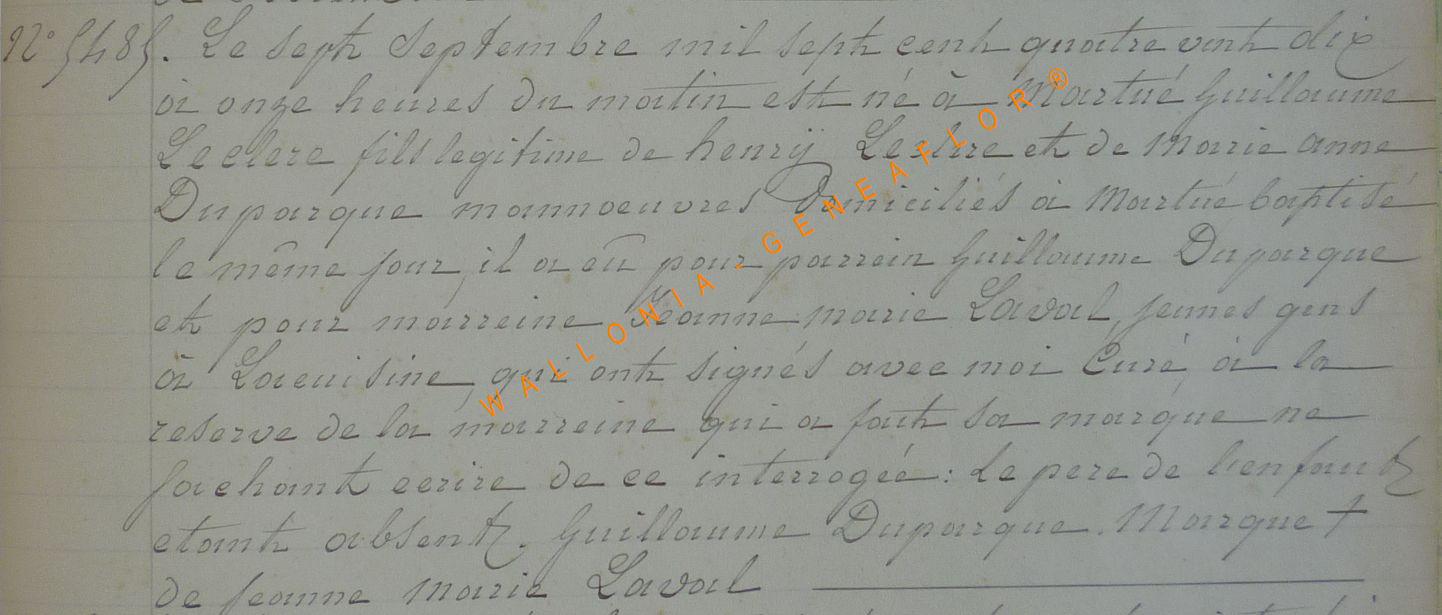 N° 5485. Le sept Septembre mil sept cent quatre vint dix
à onze heures du matin est né à Martué Guillaume
Leclere fils legitime de henrÿ Leclere et de Marie anne
Duparque mannoeuvres Domiciliés à Martué baptisé
le même jour, il a eü pour parrein Guillaume Duparque
et pour marreine Jeanne marie Laval, jeunes gens
à Lacuisine, qui ont signés avec moi Curé, à la
reserve de la marreine qui a fait sa marque ne
sachant ecrire de ce interrogée: Le pere de l'enfant
etant absent. Guillaume Duparque. Marque +
de Jeanne Marie Laval
WALLONIA - GENEAFLOR ®